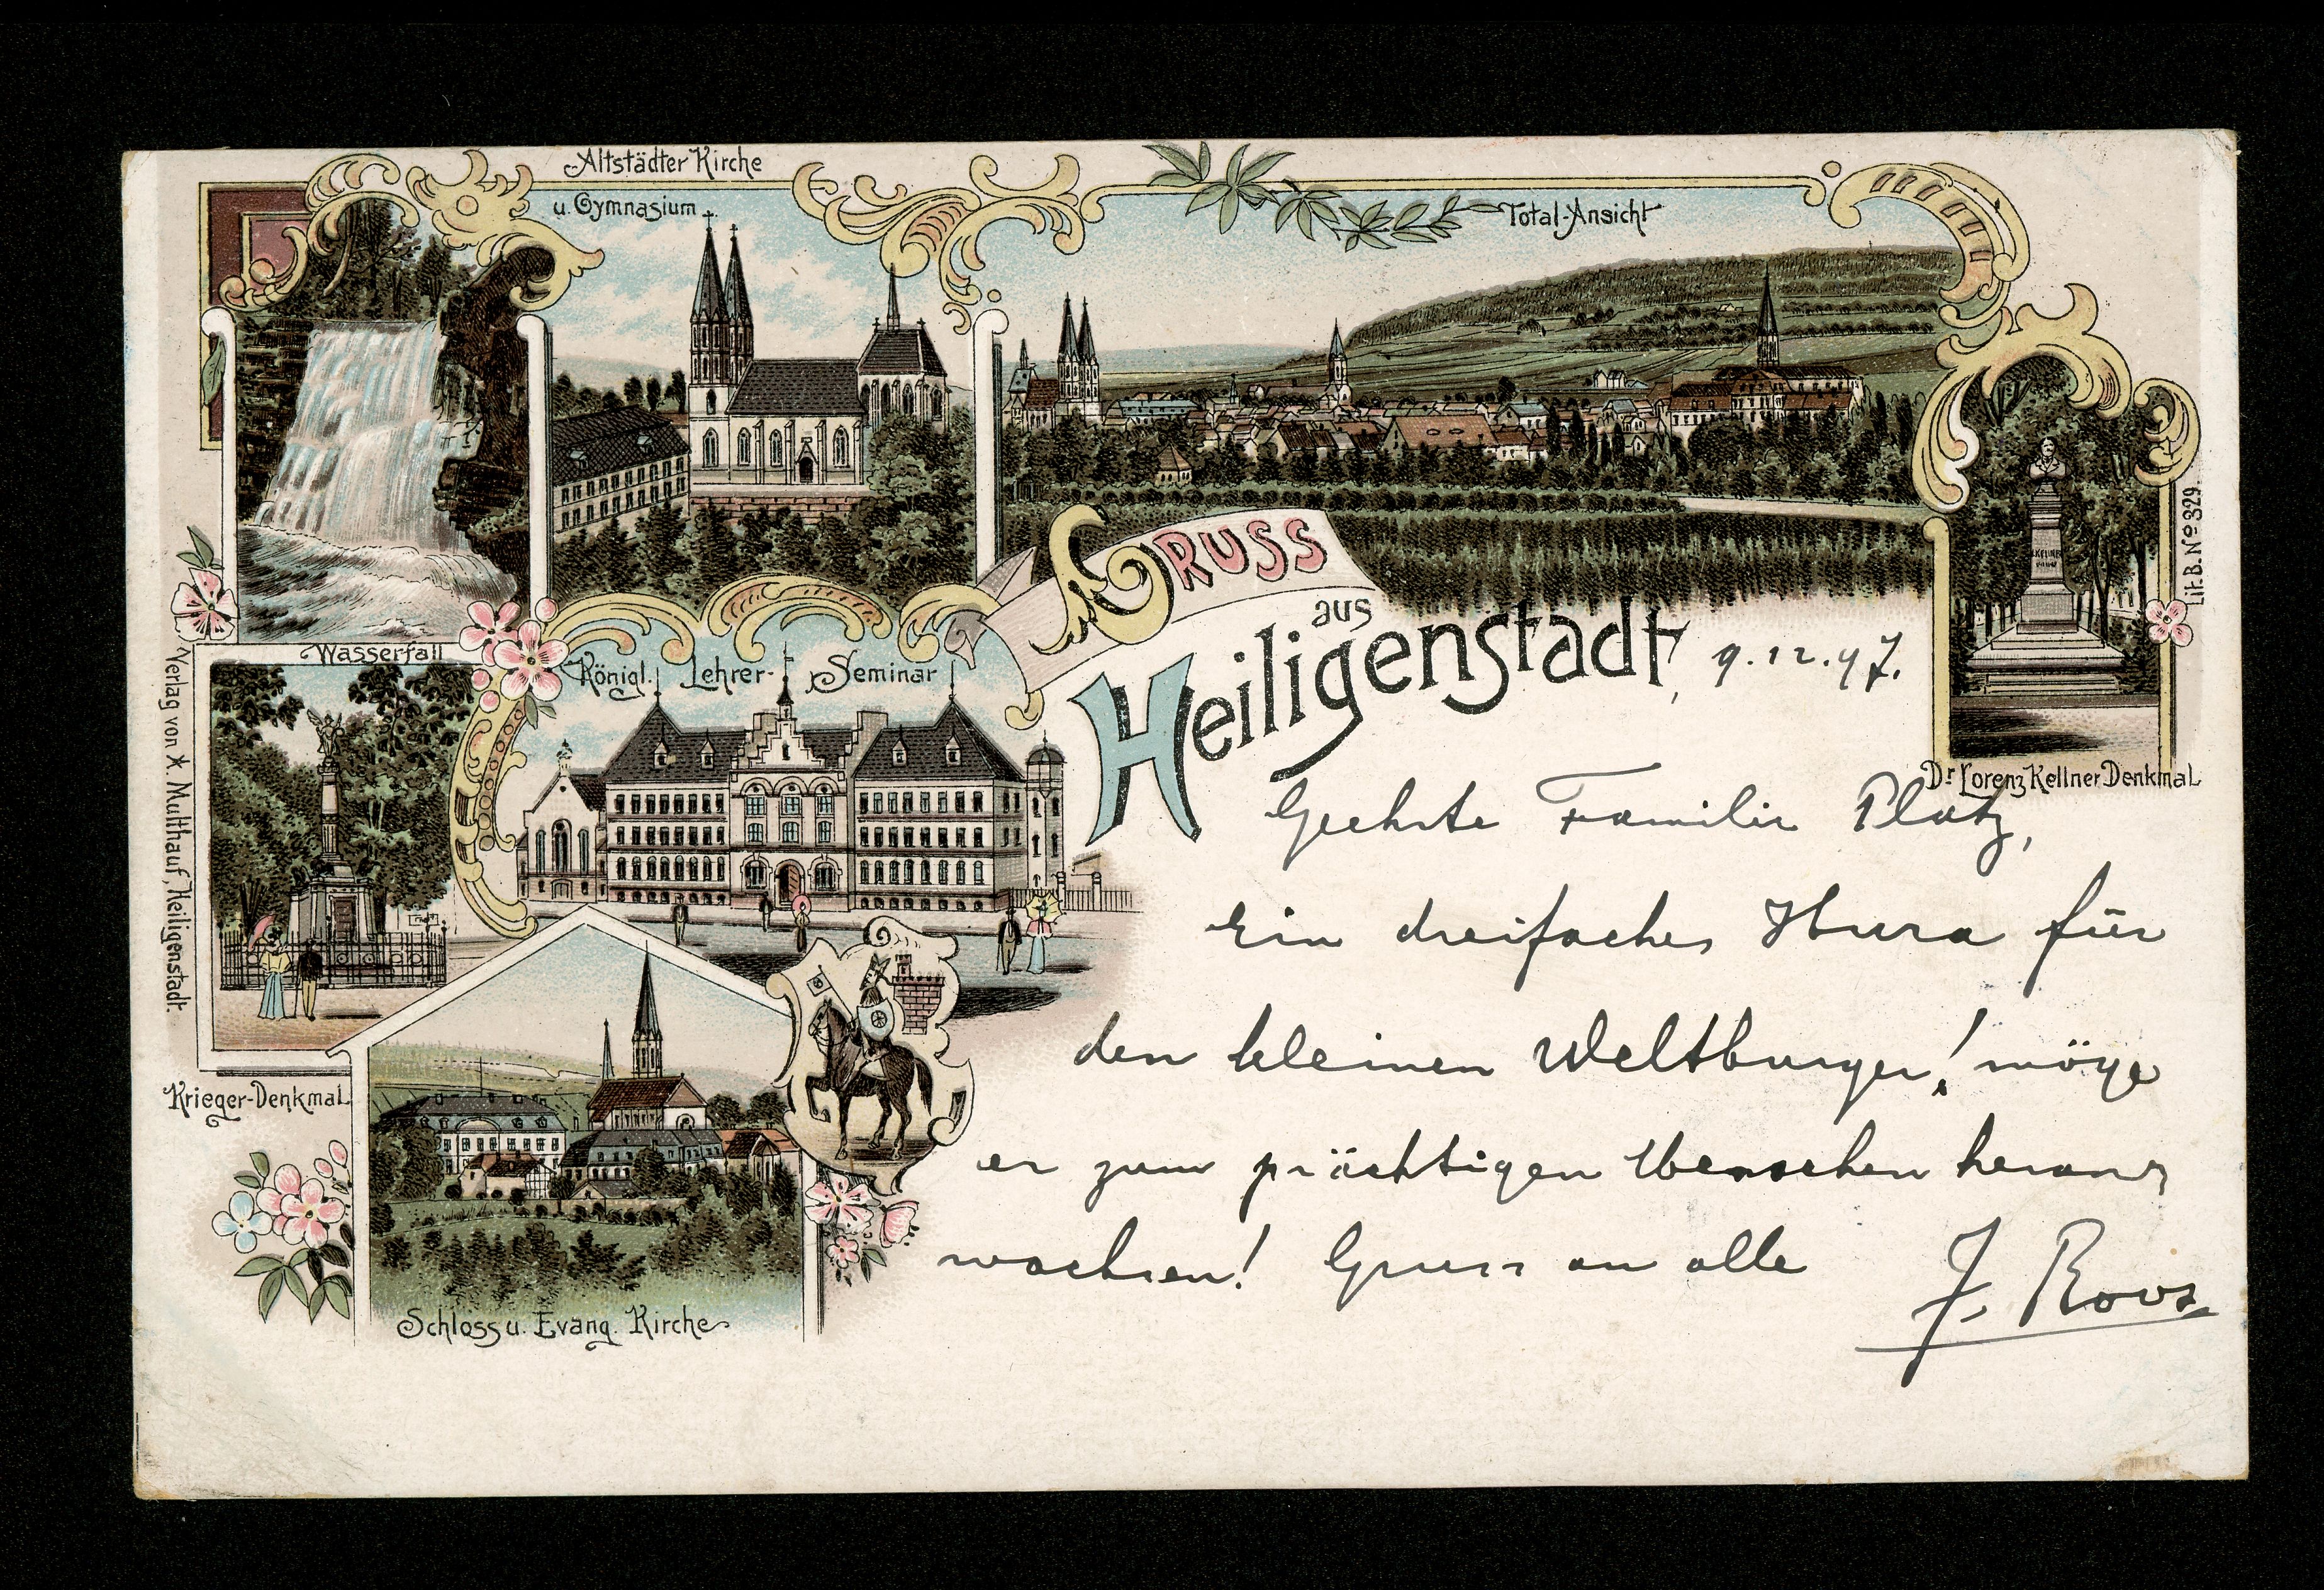 Altstädter Kirche
u. Gymnasium
Total-Ansicht
Wasserfall
Königl. Lehrer-Seminar
GRUSS
aus
Heiligenstadt, 9.12.97.
KELLNER
Lit. B. No 329.
Dr Lorenz Kellner Denkmal
Verlag von X. Multhauf, Heiligenstadt.
Krieger-Denkmal
Schloss u. Evang. Kirche
Geehrte Familie Platz,
Ein dreifaches Hurra für
den kleinen Weltburger! möge
er zum prächtigen Menschen heran
wachsen! Gruss an alle
J. Roos